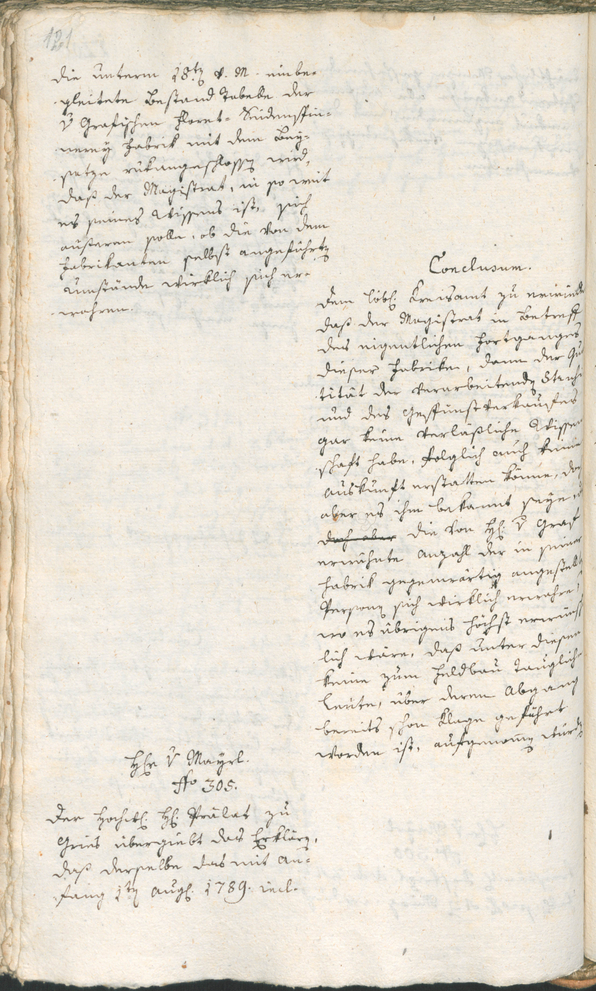 121
die unterm 18ten v. M. einbe-
gleitete Bestand Tabelle der
v Grafischen Floret-Seidenspin-
nerey Fabrik mit dem Bey-
satze rükangeschlossen wird,
daß der Magistrat, in so weit
es seines Wissens ist, sich
äusseren solle, ob die von dem
Fabrikanten selbst angeführten
Umstände wirklich sich er-
wahren.
Conclusum.
dem löbl. Kreisamt zu
daß der Magistrat in Betreff
des eigentlichen Fortganges
dieser Fabriken, dann der
tität der verarbeitenden
und des Gespunstverkaufes
gar keine verläßliche Wissen
schaft habe, folglich auch keine
Auskunft erstatten könne,
aber es ihm bekannt seye,
doch aber die von H: v Graf
erwähnte Anzahl der in seiner
Fabrik gegenwärtig angestellten
Personen sich wirklich
wo es übrigens höchst erwünsch
lich wäre, daß unter diesen
keine zum Feldbau tauglich
Leute, über deren Abgang
bereits schon Klage geführt
worden ist, aufgenommen
Hr: v Mayrl.
No 305.
Der Hochw: H: Prälat zu
Gries übergiebt das Erklären,
daß derselbe das mit An-
fang 1ten Augs: 1789.